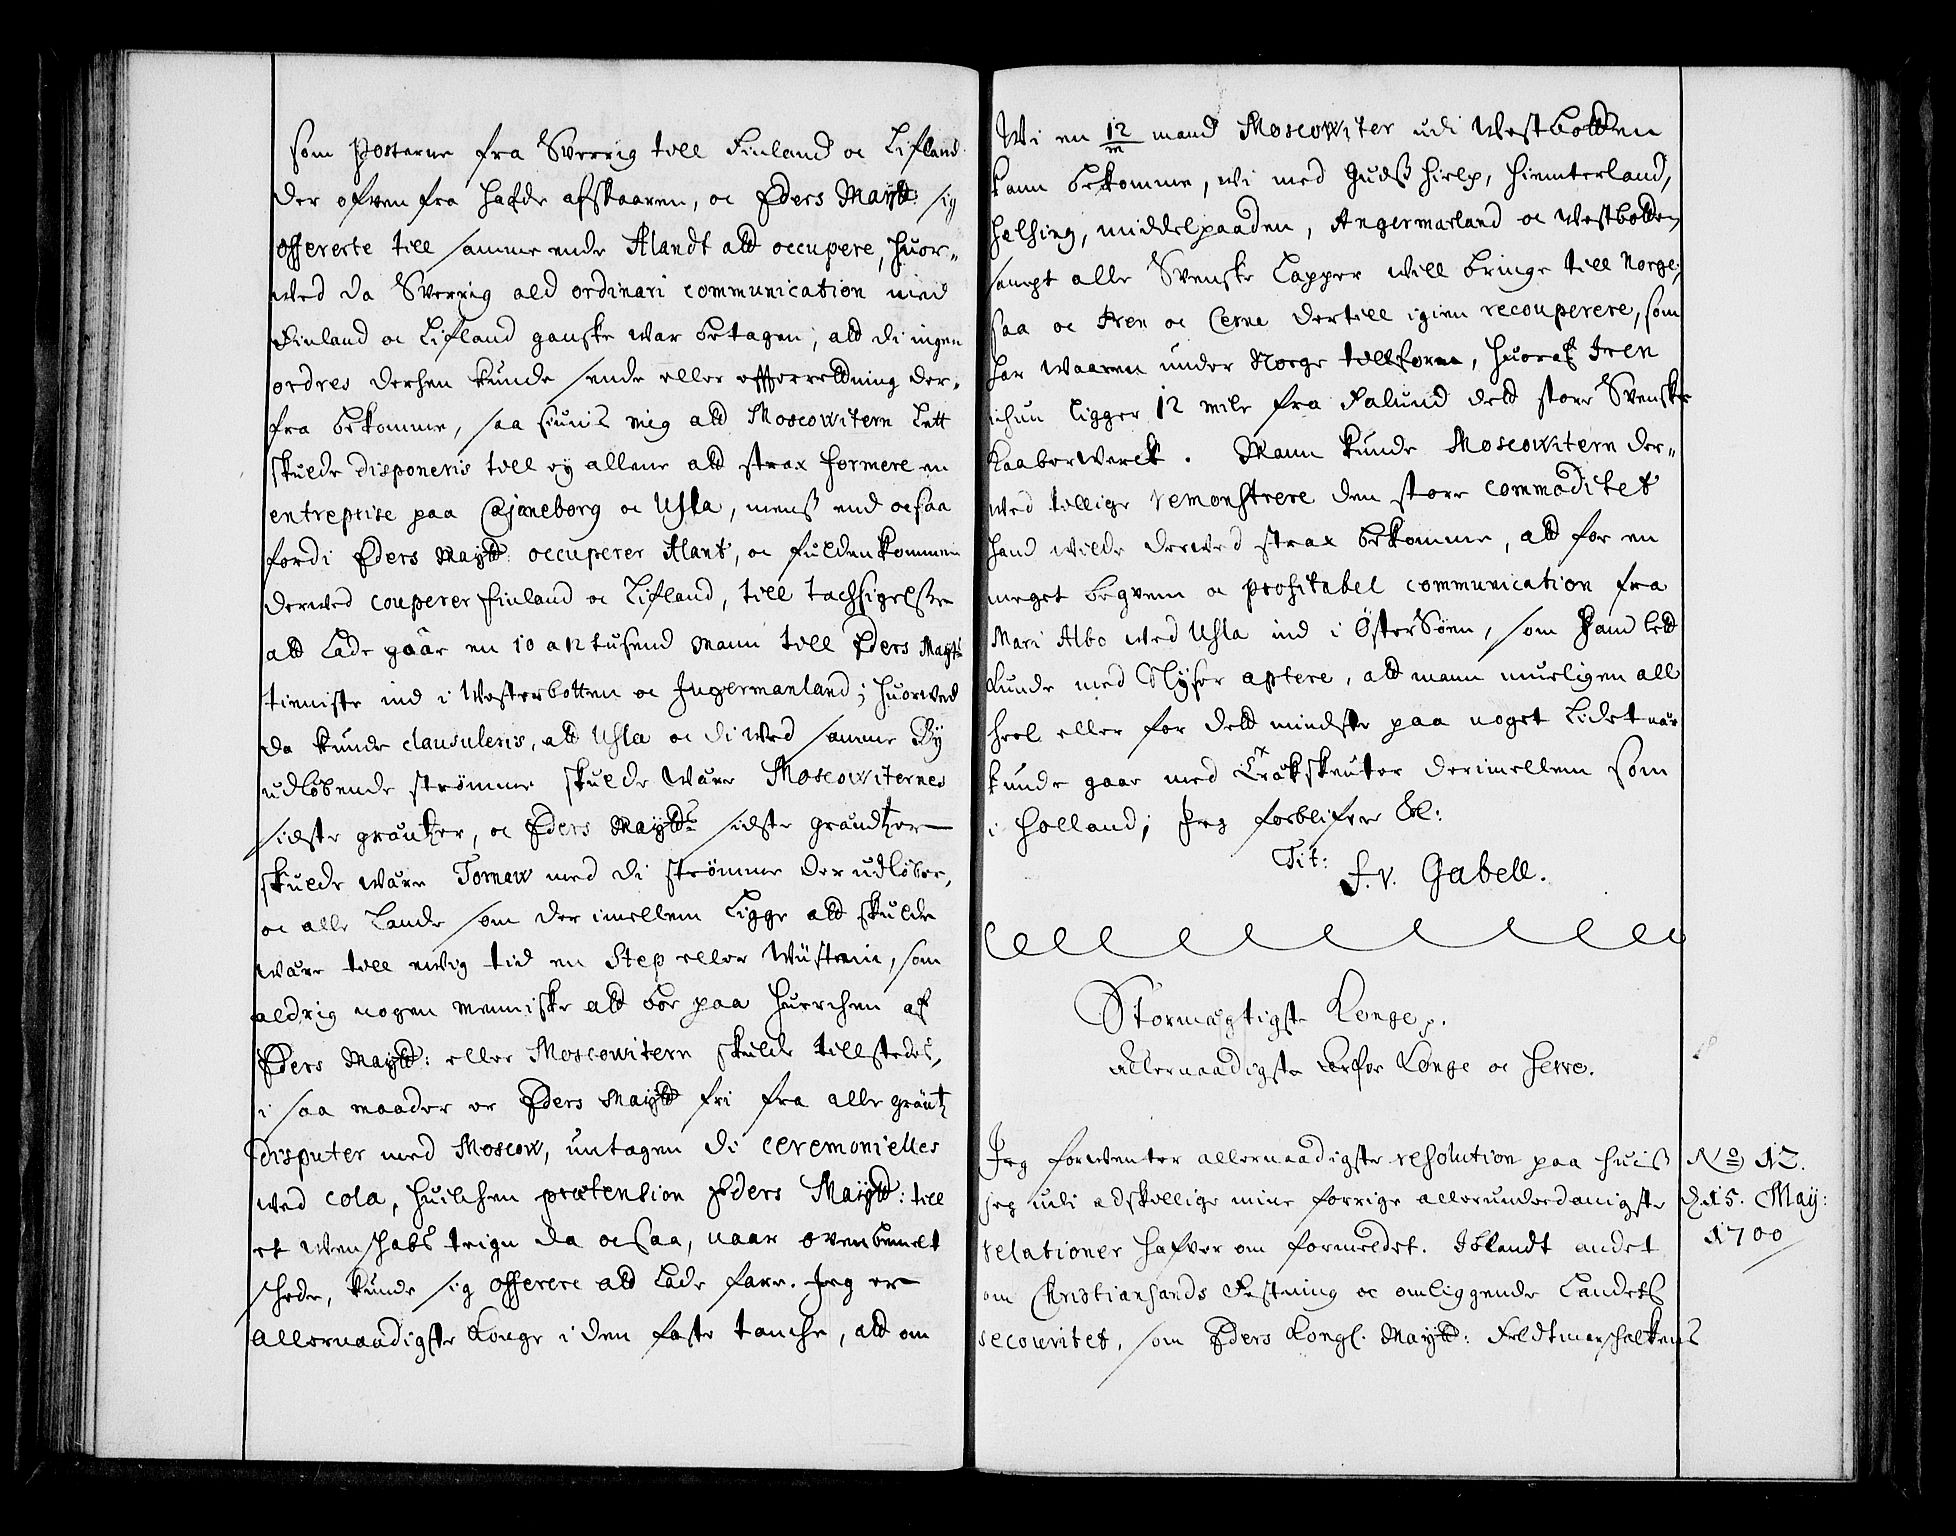 som Posterne fra Sverrig till Finland oc Lifland
der ofven fra hafde afskaaren, oc Eders Maytt: sig
offererte till samme ende Alandt att occupere, huor-
ved da Sverrig ald ordinari communication med
Finland oc Lifland ganske war betagen; att di ingen
ordres derhen kunde sende eller efterretning der-
fra bekomme, saa siunis mig att Moscowitern lett
skulde disponeris till ey allene att strax formere en
entreprise paa Cajaneborg oc Uhla, mens end ocsaa
fordi Eders Maytt: occuperer Alant, oc fuldenkommen
derved couperer Finland oc Lifland, till tachsigelsse
att lade gaar en 10 a 12 tusend Mann till Eders Mayts
tieniste ind i Westerbotten oc Ingermanland; huorved
da kunde clausuleris, att Uhla oc di ved samme By
udløbende strømme skulde være Moscowiternes
sidste gräntzer, oc Eders Maytts: sidste gräntzer
skulde være Tornaw med di strømme der udløber,
oc alle Lande som der imellem ligge att skulde
være till ewig tid en Step eller Wüstenie, som
aldrig nogen menniske att boe paa huerchen af
Eders Maytt: eller Moscowitern skulde tillstedes,
i saa maader er Eders Maytt fri fra alle gräntz
disputer med Moscow, untagen di ceremonielles
ved Cola, huilchen prætension Eders Maytt: till
et wenschabs teign da ocsaa, naar ovenbemelt
schede, kunde sig offerere att lade fare. Jeg er
allernaadigste Konge i den faste tanche, att om
Wi en 12/m mand Moscowiter udi Westbotten
kann bekomme, wi med Guds hielp, Hiemterland,
Helsing, Middelpaaden, Angermanland oc Westbotten,
sampt alle Svenske Lapper will bringe till Norge,
saa oc Iren oc Cerne dertill igien recouperere, som
har waaren under Norge tillforn, huoraf Iren
ichun ligger 12 mile fra Falund dett store Svenske
Kaaberwerck. Mann kunde Moscowitern der-
ved tillige remonstrere den store commoditet
hand wilde derved strax bekomme, att for en
meget beqvem oc profitabel communication fra
Mari Albo ved Uhla ind i ØsterSøen, som hand lett
kunde med Slyser aptere, att mann muligen all
heel eller for dett mindste paa noget lidet nær
kunde gaar med Træksskeuter derimellem som
i Holland; Jeg forblifver &c:
Tit: F. v. Gabell.
Stormægtigste Konge p.
Allernaadigste Arfve Konge oc Herre.
Jeg forventer allernaadigste resolution paa huis
jeg udi adskillige mine forrige allerunderdanigste
relationer hafver om formeldet. Iblandt andet
om Christiansands Festning oc omliggende Landets
secouritet, som Eders Kongl. Maytt: Feldtmarschalkens
No 12.
d. 15. May:
1700